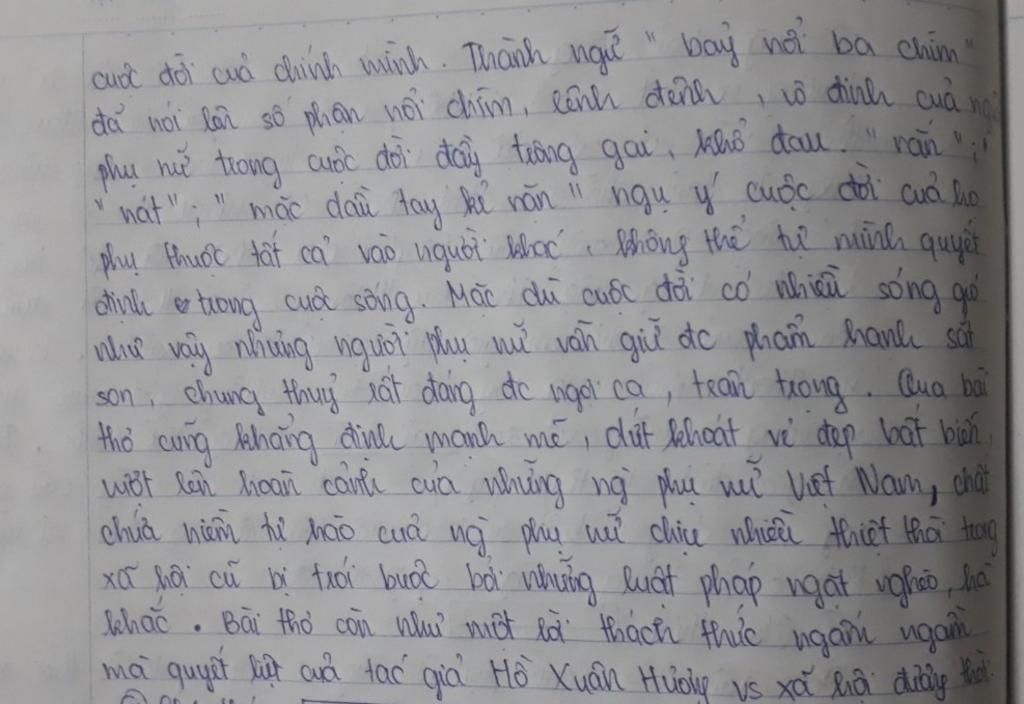 cuộc đời của chính mình. Thành ngữ "bảy nổi ba chìm"
đã nói lên số phận nổi chìm, lênh đênh, vô định của
phụ nữ trong cuộc đời đầy trông gai, khổ đau. "rắn";
"nát"; "mặc dầu tay kẻ nặn" ngụ ý cuộc đời của họ
phụ thuộc tất cả vào người khác, không thể tự mình quyết
định trong cuộc sống. Mặc dù cuộc đời có nhiều sóng gió
như vậy nhưng người phụ nữ vẫn giữ đc phẩm hạnh sắt
son, chung thuỷ rất đáng đc ngợi ca, trân trọng. Qua bài
thơ cũng khẳng định mạnh mẽ, dứt khoát vẻ đẹp bất biến,
vượt lên hoàn cảnh của những ng phụ nữ Việt Nam, chất
chứa niềm tự hào của ng phụ nữ chịu nhiều thiệt thòi trong
xã hội cũ bị trói buộc bởi những luật pháp ngặt nghèo, hà
khắc. Bài thơ còn như một lời thách thức ngấm ngầm
mà quyết liệt của tác giả Hồ Xuân Hương vs xã hội đương thời.